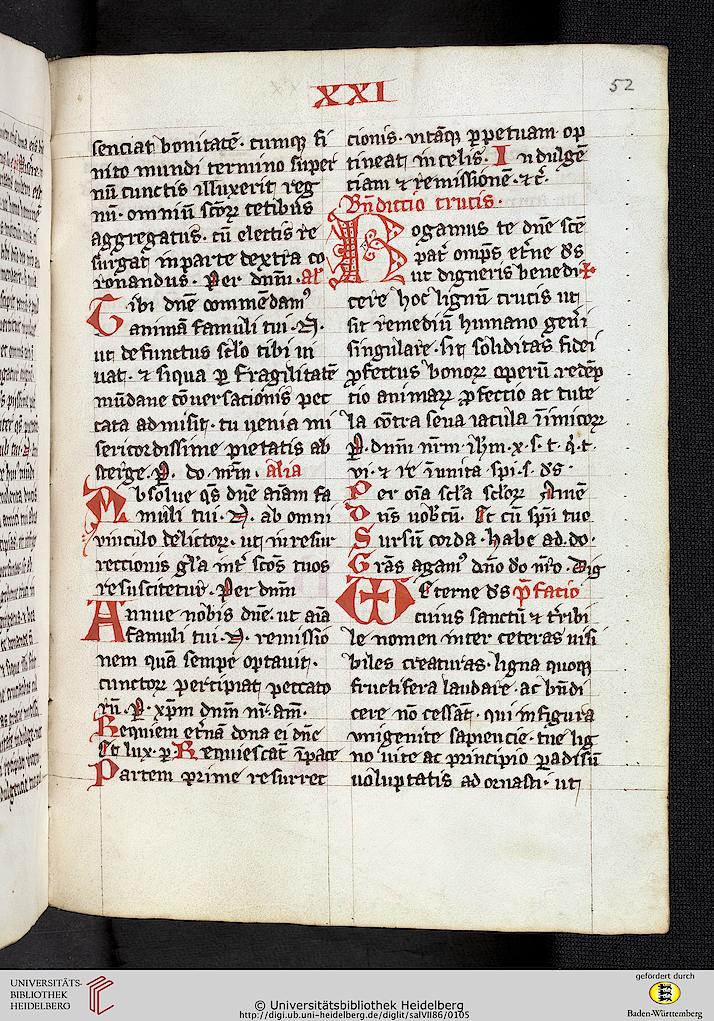 XXI
52
senciat bonitatē. cumqꝫ fi
nito mundi termino super
nū cunctis illuxerit reg
nū. omniū sc̄oꝝ cetibus
aggregatus. cū electis re
surgat in parte dextra co
ronandus. Per dnm̄. al̄
Tibi dn̄e com̄edam᷒
animā famuli tui .N.
ut defunctus sc̄lo tibi ui
uat. ⁊ siqua ꝑ fragilitatē
mūdane cōuersationis pec
cata admisit. tu uenia mi
sericordissime pietatis ab
sterge. P. do. nr̄m. alia
Absolue qs̄ dn̄e aīam fa
muli tui .N. ab omni
vinculo delictoꝝ. ut in resur
rectionis gl̄a int̄ sc̄os tuos
resuscitetur. Per dnm̄
Annue nobis dn̄e. ut aīa
famuli tui .N. remissio
nem quā semp̄ optauit.
cunctoꝝ percipiat peccato
rū. P. xp̄m dnm̄ nr̄. am̄.
Requiem et̄nā dona ei dn̄e
Et lux. ꝑ. Requiescat ī pace
Partem prime resurrec
cionis. vitāqꝫ ꝑpetuam op
tineat in celis. Indulgē
tiam ⁊ remissionē. ⁊c̄.
Bn̄dictio crucis.
Rogamus te dn̄e sc̄e
pat̄ omps̄ et̄ne ds̄
ut digneris benedi✠
cere hoc lignū crucis ut
sit remediū humano gen̄i
singulare. sit soliditas fidei
ꝓfectus bonoꝝ operū redēp
tio animaꝝ ꝓtectio ac tute
la cōtra seua iacula īimicoꝝ
P. dnm̄ nr̄m ih̄m .x. f. t. q̄. t.
vi. ⁊ re ī unita spi. s. ds̄.
Per oīa sc̄la sc̄loꝝ Amē
Dn̄s uob̄cū. Et cū sp̄ū tuo
Sursū corda. habe ad. do.
Grās agam᷒ dn̄o do nr̄o. Dig
Et̄erne ds̄ p̄facio
cuius sanctū ⁊ t̄ribi
le nomen inter ceteras uisi
biles creaturas. ligna quoqꝫ
fructifera laudare. ac bn̄di
cere nō cessāt. qui in figura
vnigenite sapiencie. tue lig
no uite ac principio paradisū
uoluptatis ad ornasti. ut
UNIVERSITÄTS-
BIBLIOTHEK
HEIDELBERG
© Universitätsbibliothek Heidelberg
http://digi.ub.uni-heidelberg.de/diglit/salVII86/0105
gefördert durch
Baden-Württemberg